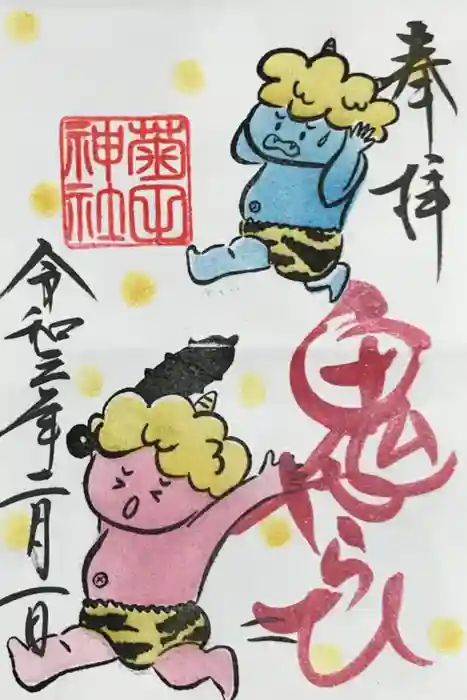 奉拝
鬼やらひ
菊田
神社
令和三年二月二日